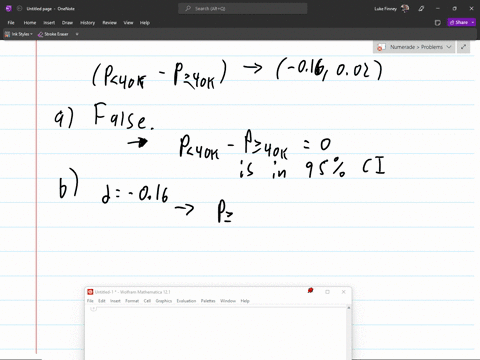 Untitled page - OneNote
Search (Alt+Q)
Luke Finney
File Home Insert Draw History Review View Help
Share
Ink Styles Stroke Eraser
Numerade > Problems
(P<40K - P≥40K) → (-0.16, 0.02)
a) False.
→ P<40K - P≥40K = 0
is in 95% CI
b) d = -0.16
→ P≥
Untitled-1 * - Wolfram Mathematica 12.1
File Edit Insert Format Cell Graphics Evaluation Palettes Window Help